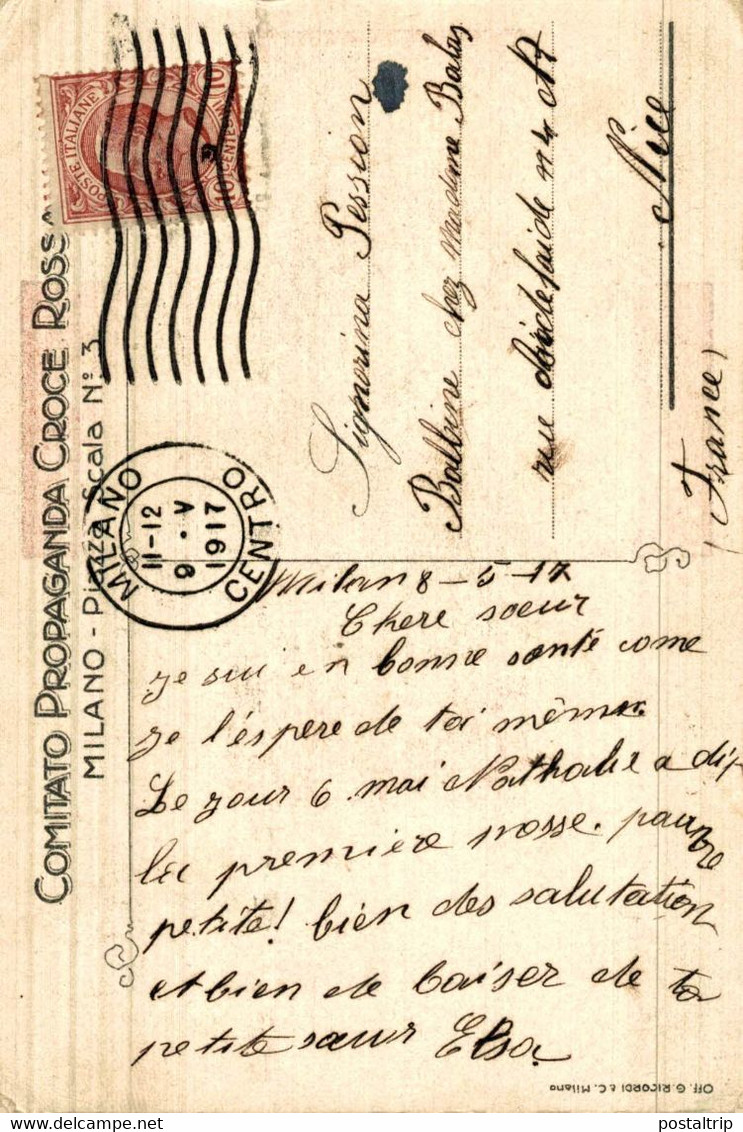 COMITATO PROPAGANDA CROCE ROSSA
MILANO - Piazza Scala N° 3
POSTE ITALIANE
CENTESIMI
10 10
MILANO
11-12
9 · V
1917
CENTRO
Signorina Pession
Balbine chez Madame Balas
rue n 4 A7
Nice
(France)
Milan 8-5-17
Chere sœur
je sui en bonne santé come
je l'éspere de toi même
Le jour 6 mai Nathalie a dip
la premiere nosse. pauvre
petite! bien des salutation
et bien de baiser de ta
petite sœur Elsa
OFF. G. RICORDI & C. Milano
postaltrip
www.delcampe.net
postaltrip